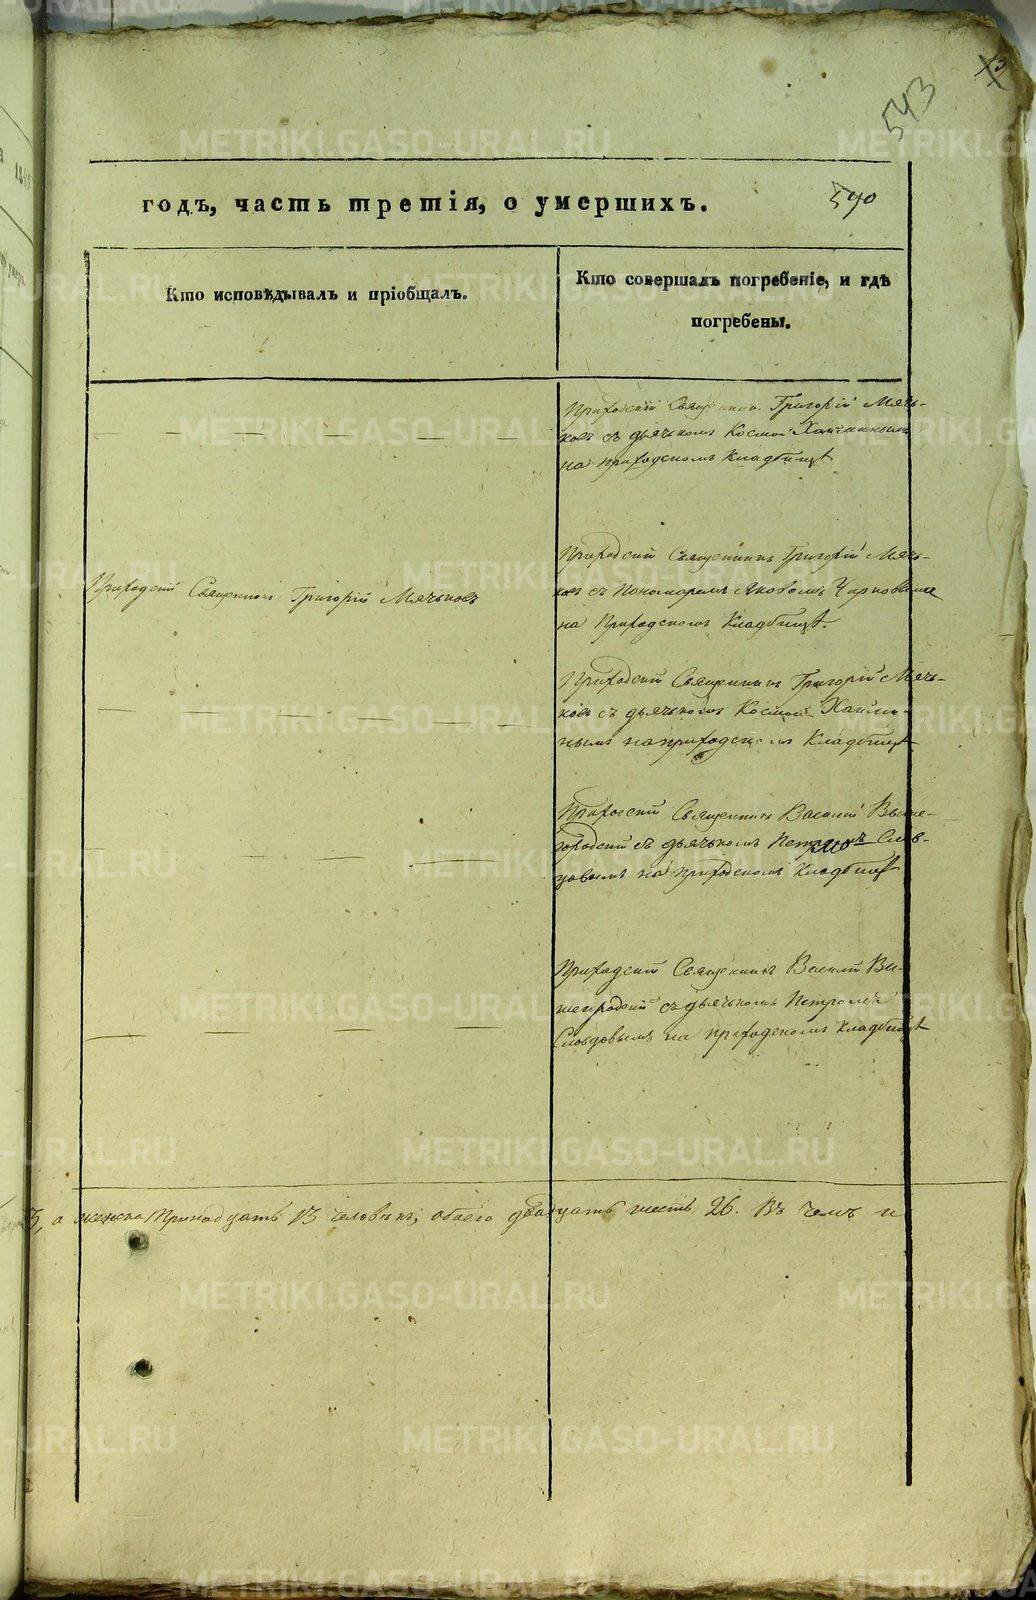 543
590
годъ, часть третія, о умершихъ.
Кто исповѣдывалъ и пріобщалъ.
Кто совершалъ погребеніе, и гдѣ
погребены.
Приходскій Священникъ Григорій Мячь-
ковъ съ дьячькомъ Космою
на приходскомъ Кладбищѣ
Приходскій Священникъ Григорій Мячьковъ
Приходскій Священникъ Григорій Мячь-
ковъ съ Пономаремъ Яковомъ
на Приходскомъ Кладбищѣ.
Приходскій Священникъ Григорій Мячь-
ковъ съ дьячькомъ Космою
нымъ на приходскомъ Кладбищѣ
Приходскій Священникъ Василій Выше-
городскій съ дьячькомъ Петромъ Слов-
цовымъ на приходскомъ Кладбищѣ
Приходскій Священникъ Василій Вы-
шегородскій съ дьячькомъ Петромъ
Словцовымъ на приходскомъ Кладбищѣ
3, а женска тринадцать 13 человѣкъ, обоего двадцать шесть 26. Въ чемъ и
METRIKI.GASO-URAL.RU